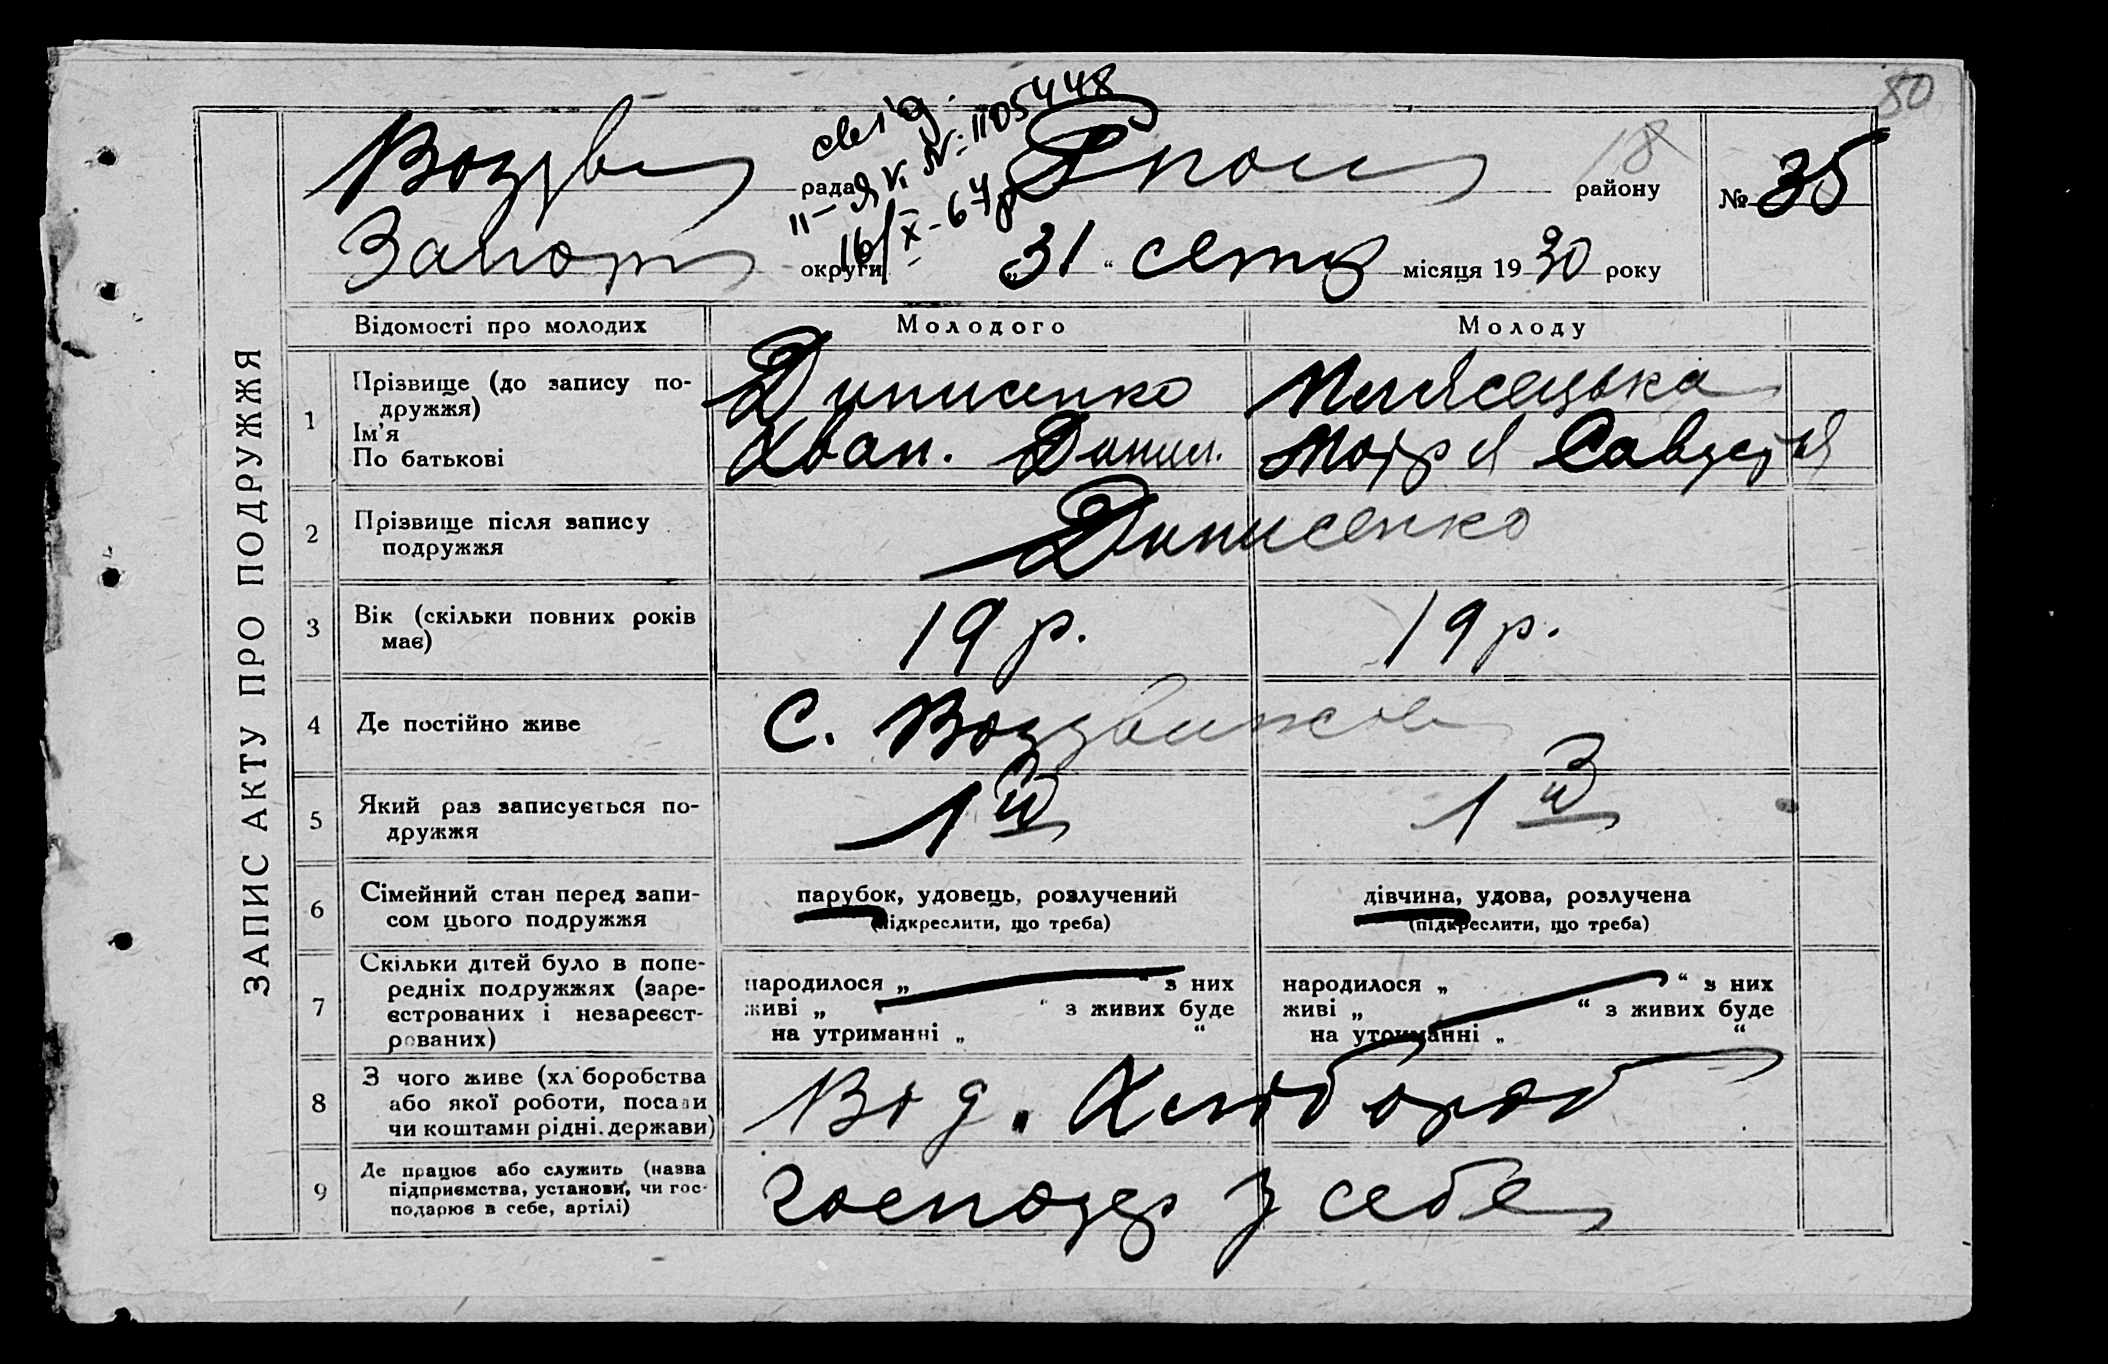 80
свід.
ІІ-ЯК № 1105448
16/X-67р
18
Воздв рада району № 35
Запор округи „31“ місяця 1930 року
ЗАПИС АКТУ ПРО ПОДРУЖЖЯ
Відомості про молодих Молодого Молоду
1 Прізвище (до запису по-
дружжя)
Ім'я
По батькові
Динисенко
Іван. Данил. Мотря
2 Прізвище після запису
подружжя
Динисенко
3 Вік (скільки повних років
має)
19 р. 19 р.
4 Де постійно живе
С. Воздвижов
5 Який раз записується по-
дружжя
1 й 1 й
6 Сімейний стан перед запи-
сом цього подружжя
парубок, удовець, розлучений
(підкреслити, що треба)
дівчина, удова, розлучена
(підкреслити, що треба)
7 Скільки дітей було в попе-
редніх подружжях (заре-
єстрованих і незареєст-
рованих)
народилося „ “ з них
живі „ “ з живих буде
на утриманні „ “
народилося „ “ з них
живі „ “ з живих буде
на утриманні „ “
8 З чого живе (хліборобства
або якої роботи, посади
чи коштами рідні. держави)
Від. Хлібороб
9 Де працює або служить (назва
підприємства, установи, чи гос-
подарює в себе, артілі)
господар у себе